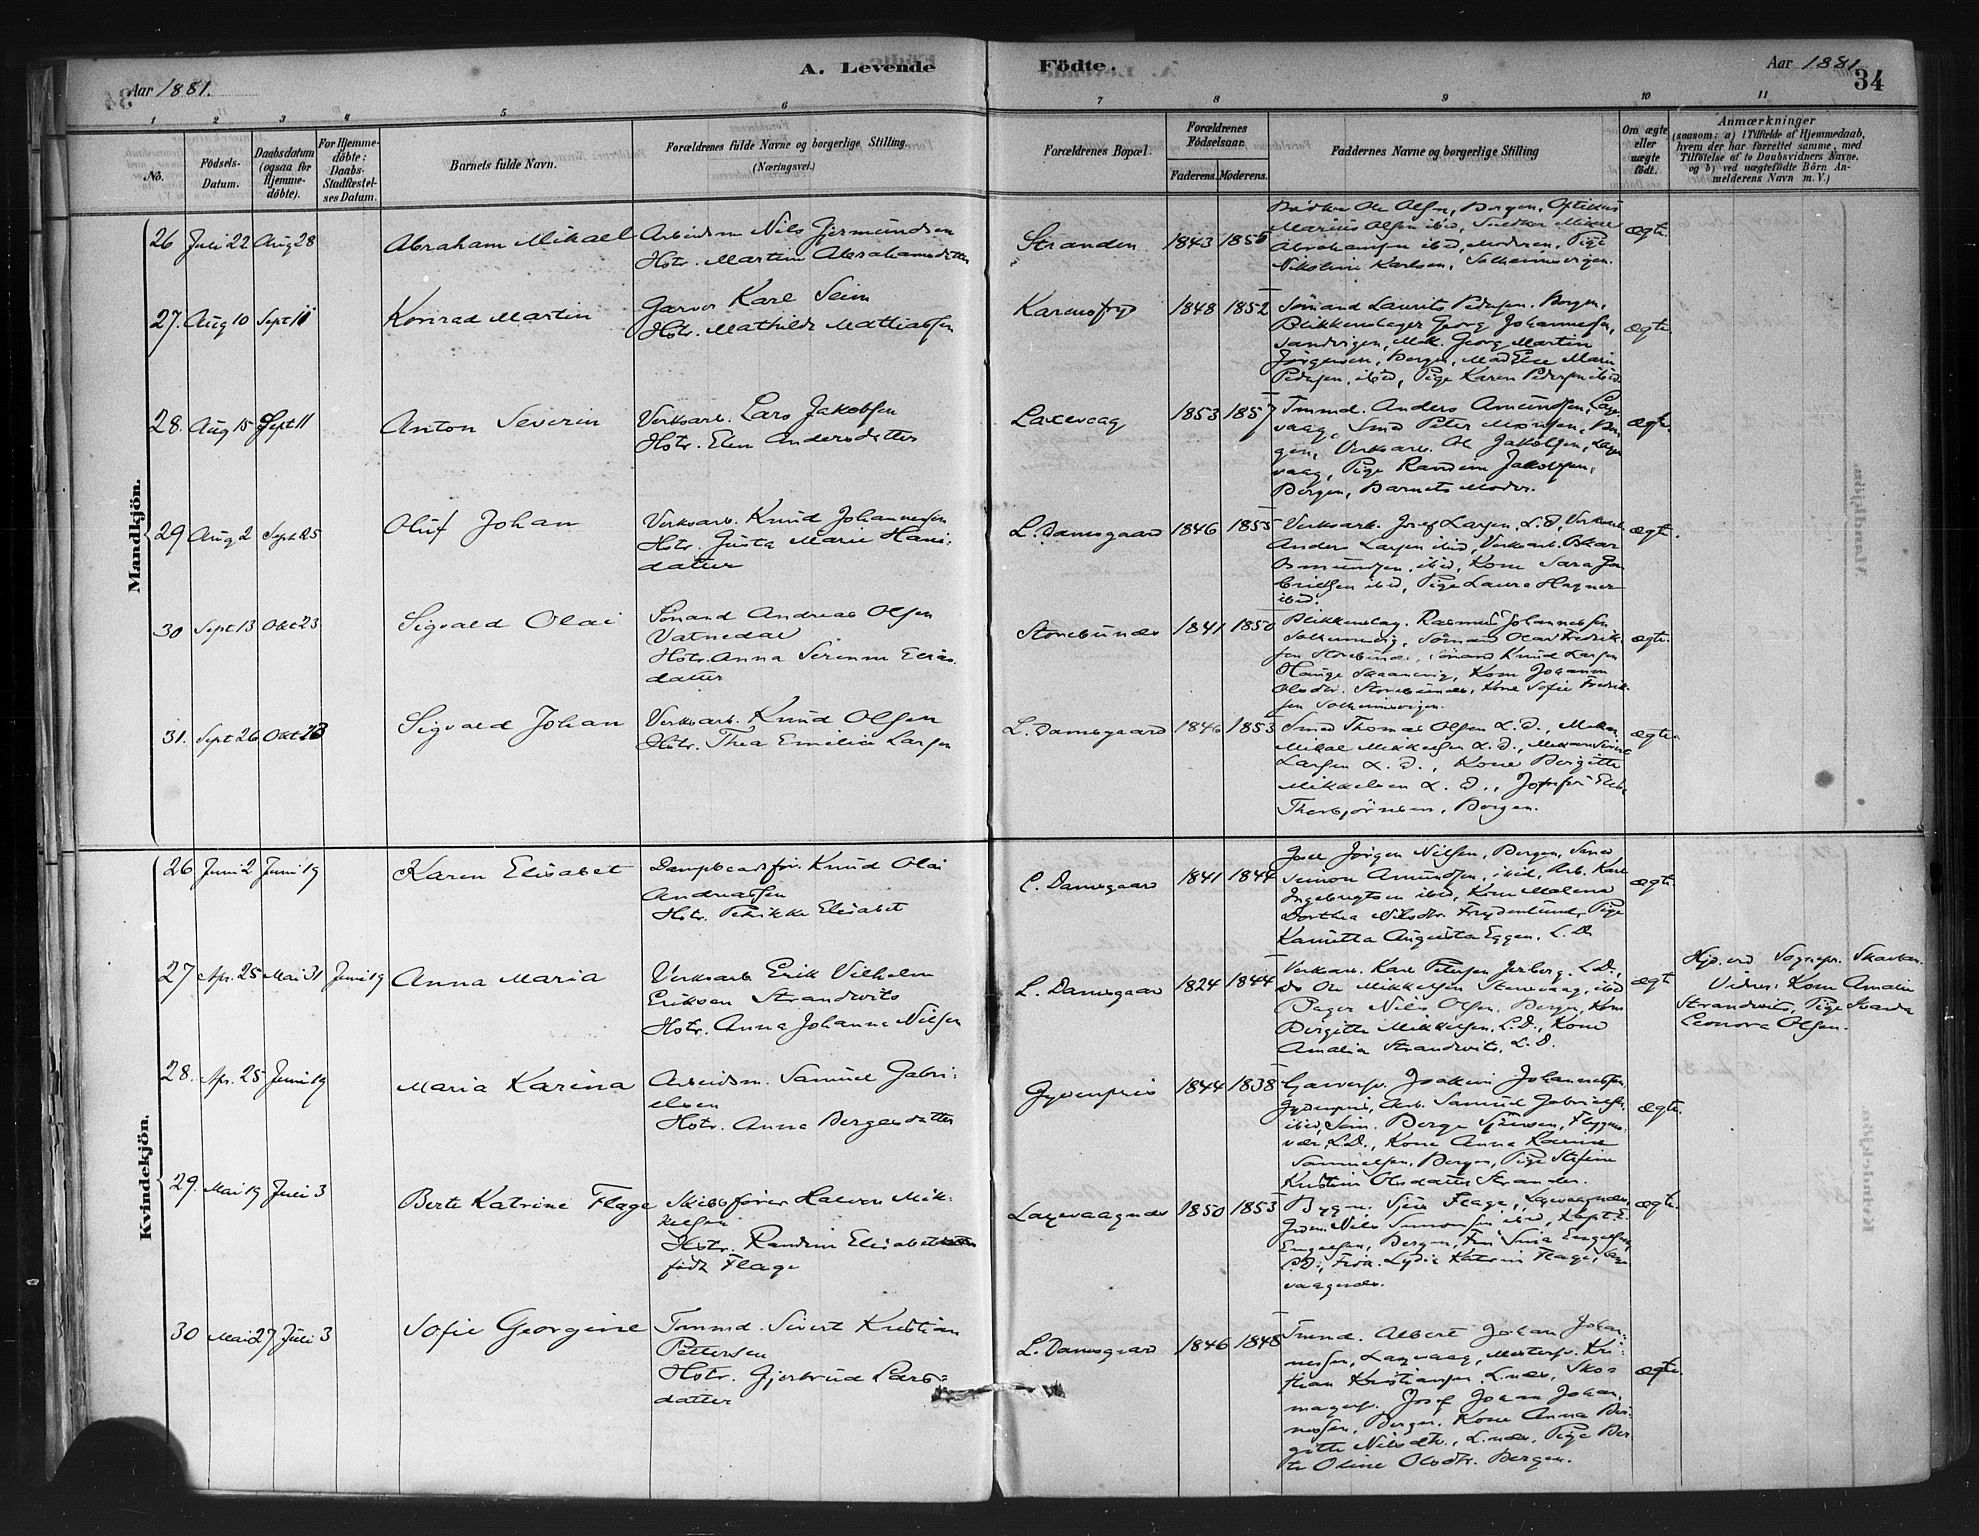 Aar 1881.
A. Levende
Födte.
Aar 1881
34
1 2 3 4 5 6 7 8 9 10 11
No.
Födsels-Datum.
Daabsdatum (ogsaa for Hjemme-döbte).
For Hjemme-döbte: Daabs-Stadfæstel-ses Datum.
Barnets fulde Navn.
Forældrenes fulde Navne og borgerlige Stilling.
(Næringsvei.)
Forældrenes Bopæl.
Forældrenes Födselsaar.
Faderens. Moderens.
Faddernes Navne og borgerlige Stilling
Om ægte eller uægte födt.
Anmærkninger
(saasom: a) i Tilfælde af Hjemmedaab, hvem der har forrettet samme, med Tilföielse af to Daabsvidners Navne, og b) ved uægtefödte Börn An-melderens Navn m. V.)
Mandkjön.
26 Juli 22 Aug 28 Abraham Mikael
Arbeidsm Nils Gjermundsen
Hstr. Martha Abrahamsdatter
Stranden 1843 1856
Bödker Ole Olsen, Bergen, Optikus
Marius Olsen ibid, Snedker Mikael
Abrahamsen ibid, Moderen, Pige
Nikoline Karlsen, Solheimsvigen.
ægte.
27. Aug 10 Sept 11 Konrad Martin
Garver Karl Seim
Hstr. Mathilde Mathiassen
1848 1852
Sömand Laurits Pedersen. Bergen,
Blikkenslager Georg Johannesen,
Sandvigen, Georg Martin
Jörgensen, Bergen, Mad Else Marie
Pedersen, ibid, Pige Karen Pedersen ibid
ægte.
28. Aug 15 Sept 11 Anton Severin
Verksarb. Lars Jakobsen
Hstr. Elen Andersdatter
Laxevaag 1853 1857
Tmmd. Anders Amundsen, Laxe-
vaag, Smed Peter Monsen, Ber-
gen, Verksarb. Ole Jakobsen, Laxe-
vaag, Pige Randine Jakobsen,
Bergen, Barnets Moder.
ægte.
29 Aug 2 Sept 25 Oluf Johan
Verksarb. Knud Johannesen
Hstr. Gusta Marie Hans-
datter
L. Damsgaard 1846 1855
Verksarb. Josef Larsen, L.D, Verksarb
Anders Larsen ibid, Verksarb. Oskar
Osmundsen, ibid, Kone Sara Ga-
brielsen ibid, Pige Laura Hagner
ibid.
ægte.
30 Sept 13 Okt 23 Sigvald Olai
Sömand Andreas Olsen
Vatnedal
Hstr. Anna Serenne Elias-
datter
Storebunds 1841 1850
Blikkenslag. Rasmus Johannessen
Solheimsvig, Sömand Olai Fredrik-
sen Storebunds, Sömand Knud Larsen
Hauge, Kone Johanna
Olsdtr. Storebunds, Kone Sofie Fredrik-
sen Solheimsvigen.
ægte.
31. Sept 26 Okt 23 Sigvald Johan
Verksarb. Knud Olsen
Hstr. Thea Emilie Larsen
L. Damsgaard 1846 1853
Smed Thomas Olsen L.D.,
Mikal Mikkelsen L.D.,
Larsen L.D., Kone Bergitte
Mikkelsen L.D.,
Thorbjörnsen, Bergen.
ægte.
Kvindekjön.
26 Juni 2 Juni 19 Karen Elisabet
Dampbaadsför. Knud Olai
Andreassen
Hstr. Petrikke Elisabet
L. Damsgaard 1841 1844
Jörgen Nilsen, Bergen, Smed
Simon Amundsen, ibid, Arb. Karl
Ingebrigtsen ibid, Kone Malena
Dorthea Nilsdtr. Frydenlund, Pige
Kanutta Augusta Eggen, L.D.
ægte.
27 Apr. 25 Mai 31 Juni 19 Anna Maria
Verksarb Erik Vilhelm
Erikson Strandvits
Hstr. Anna Johanna Nilsen
L. Damsgaard 1824 1844
Verksarb. Karl Petersen Jerberg. L.D.,
Do Ole Mikkelsen, ibid
Bager Nils Olsen, Bergen, Kone
Birgitte Mikkelsen, L.D., Kone
Amalia Strandvits, L.D.
ægte
Hjd. ved Sognepr.
Vidner: Kone Amalie
Strandvits, Pige
Leonora Olsen.
28. Apr. 25 Juni 19 Maria Karina
Arbeidsm. Samuel Gabri-
elsen
Hstr. Anna Bergesdatter
Gyldenpris 1844 1838
Garversv. Joakim Johannessen,
Gyldenpris, Arb. Samuel Gabrielsen
ibid, Söm. Berge,
L.D., Kone Anna
Samuelsen, Bergen, Pige Stefine
Kristine Olsdatter Stranden.
ægte.
29. Mai 19 Juli 3 Berte Katrine Flage
Skibsförer Halvor Mik-
kelsen
Hstr. Randine Elisabet
födt Flage
Laxevaagnæs 1850 1853
Bygm. Flage, Laxevaagnæs,
Nils Simonsen ibid, Kapt. E.
Engelsen, Bergen, Engelsen,
L.D., Lydia Katrine Flage, Laxe-
vaagnæs.
ægte.
30 Mai 27 Juli 3 Sofie Georgine
Tmmd. Sivert Kristian
Pettersen
Hstr. Gjertrud Lars-
datter
L. Damsgaard 1846 1848
Tmmd. Albert Johan Johan-
nessen, Laxevaag, Mestersv. Kri-
stian Kristiansen, Lnæs, Sko-
magersv. Josef Johan Johan-
nessen, Bergen. Kone Anna Bir-
gitte Nilsdtr., Lnæs, Pige Ber-
te Oline Olsdtr. Bergen.
ægte.